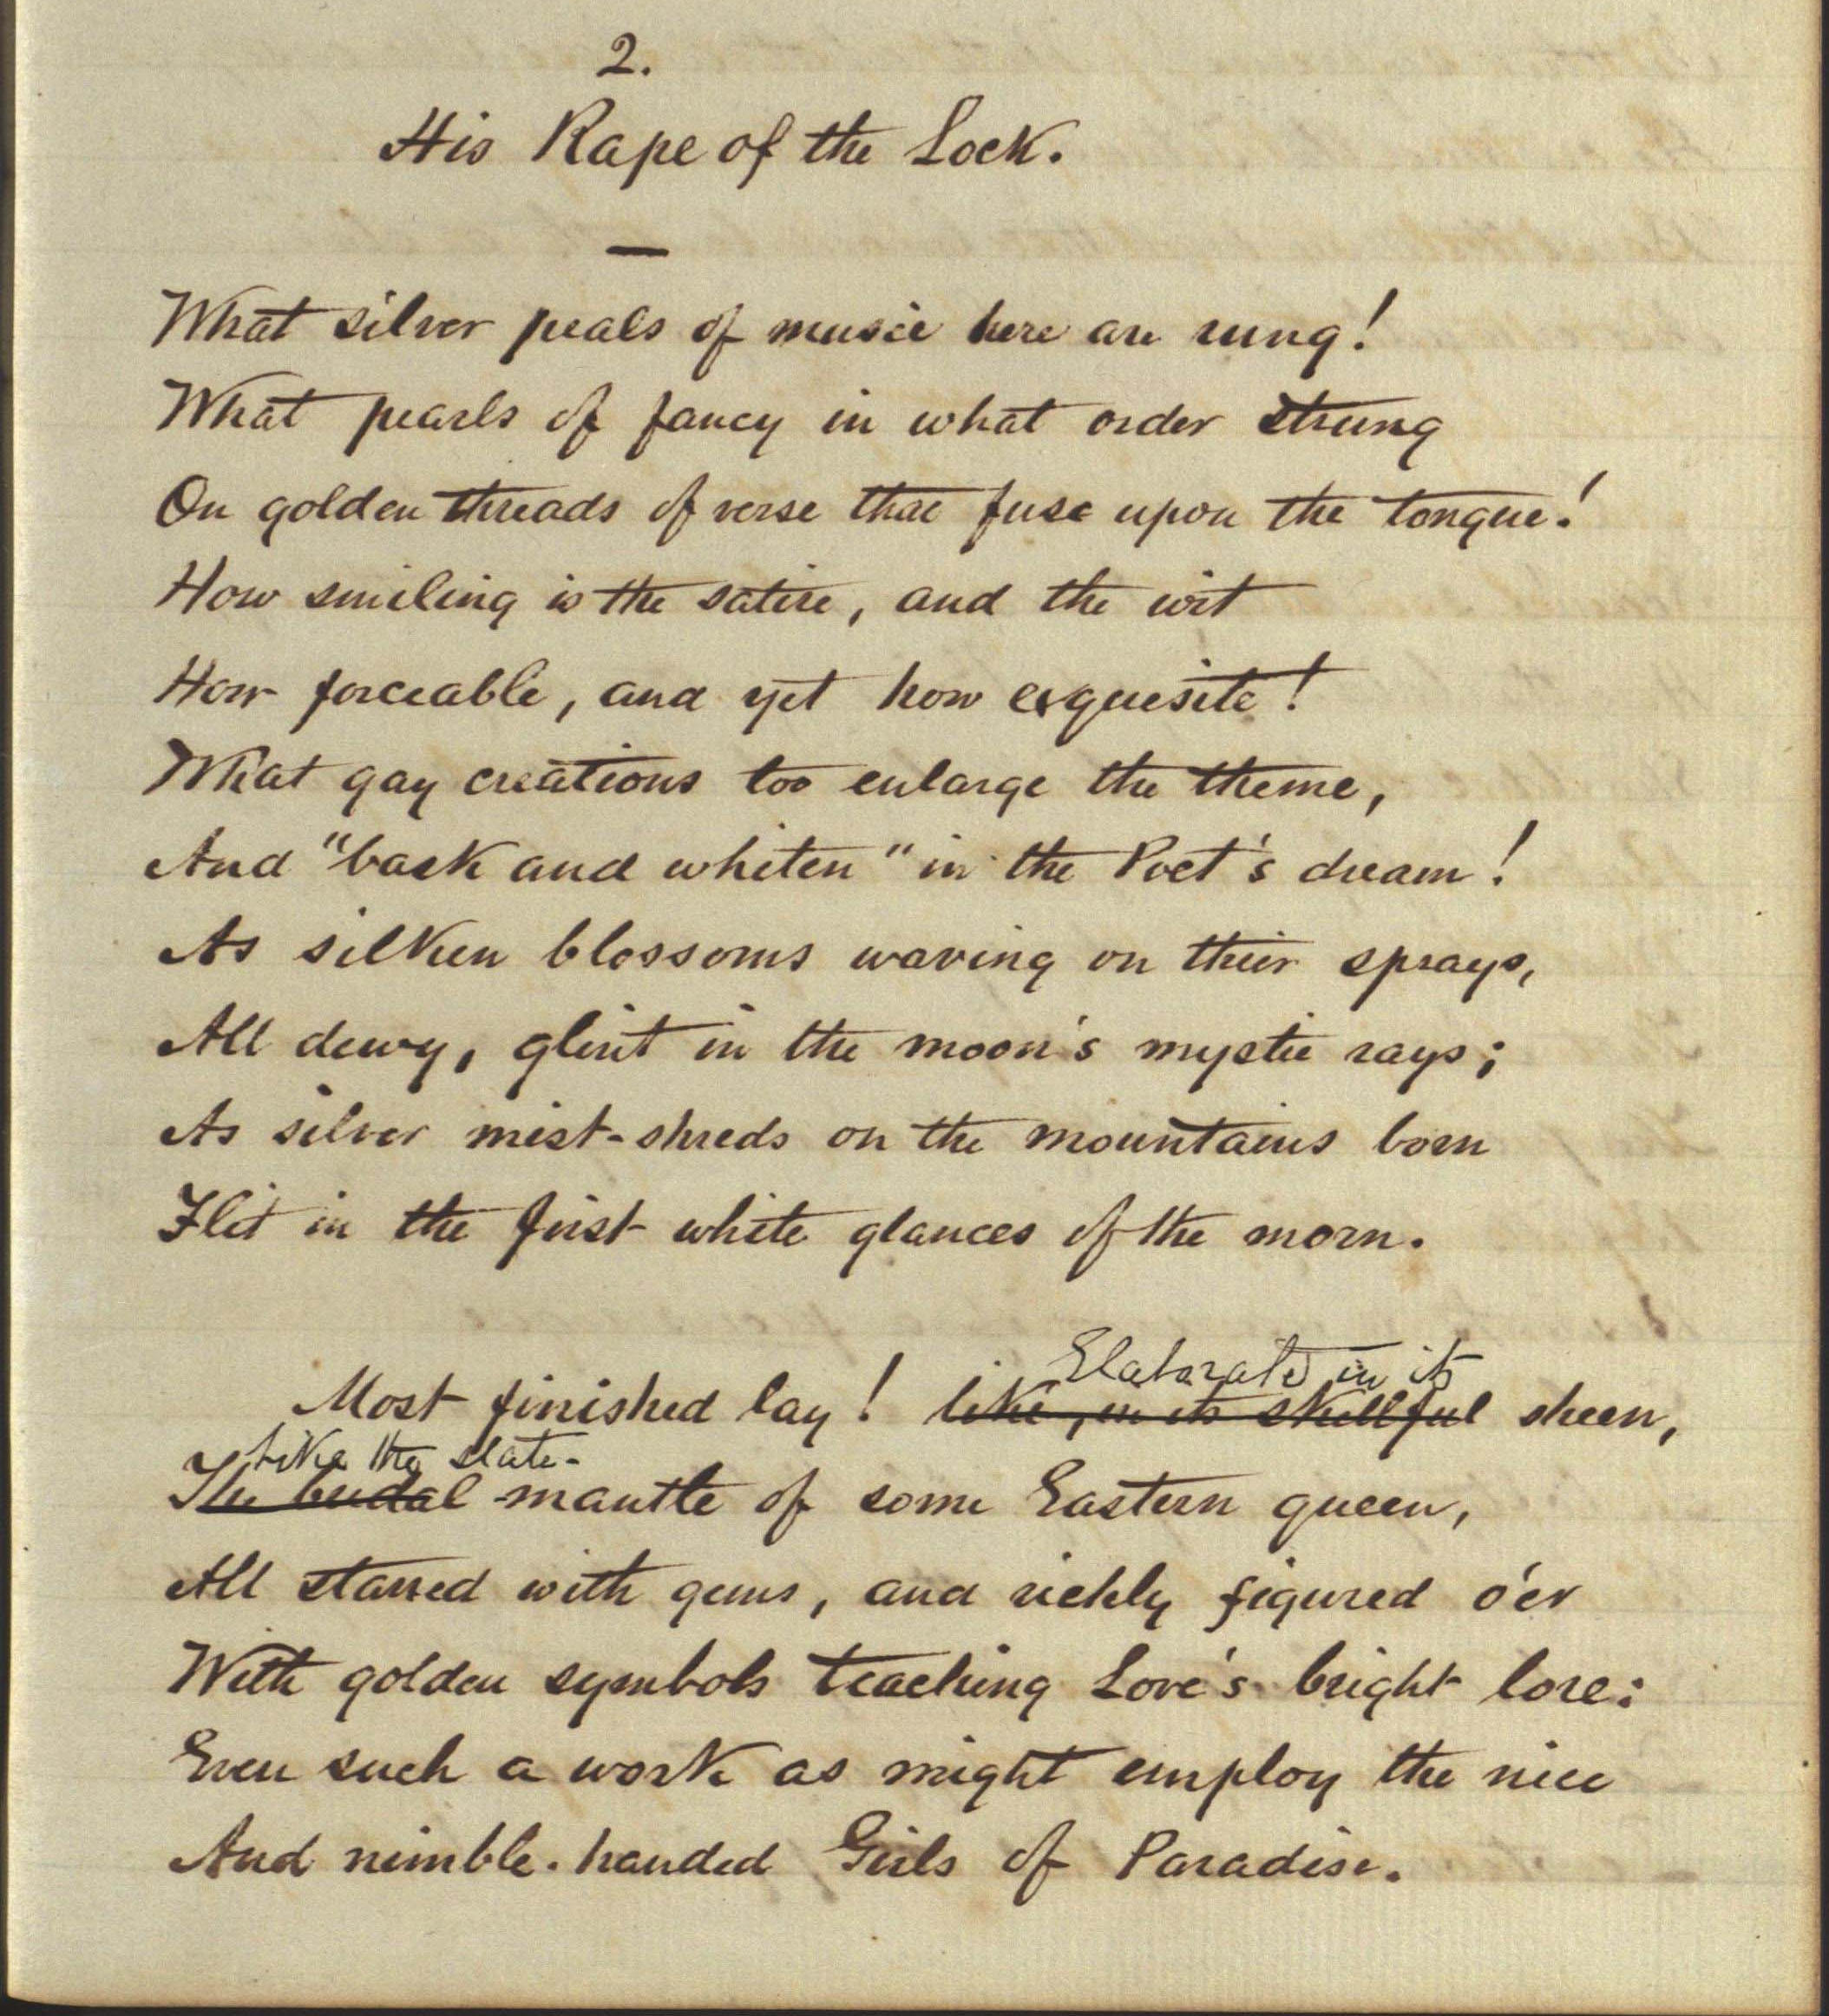 2.
His Rape of the Lock.
—
What silver peals of music here are rung!
What pearls of fancy in what order strung
On golden threads of verse that fuse upon the tongue!
How smiling is the satire, and the wit
How forceable, and yet how exquesite!
What gay creations too enlarge the theme,
And "bask and whiten" in the Poet's dream!
As silken blossoms waving on their sprays,
All dewy, glint in the moon's mystic rays;
As silver mist-shreds on the mountains born
Flit in the first white glances of the morn.
Elaborate in its
Most finished lay! like, in its skillful sheen,
Like the state-
The bridal mantle of some Eastern queen,
All starred with gems, and richly figured o'er
With golden symbols teaching Love's bright lore:
Even such a work as might employ the nice
And nimble-handed Girls of Paradise.